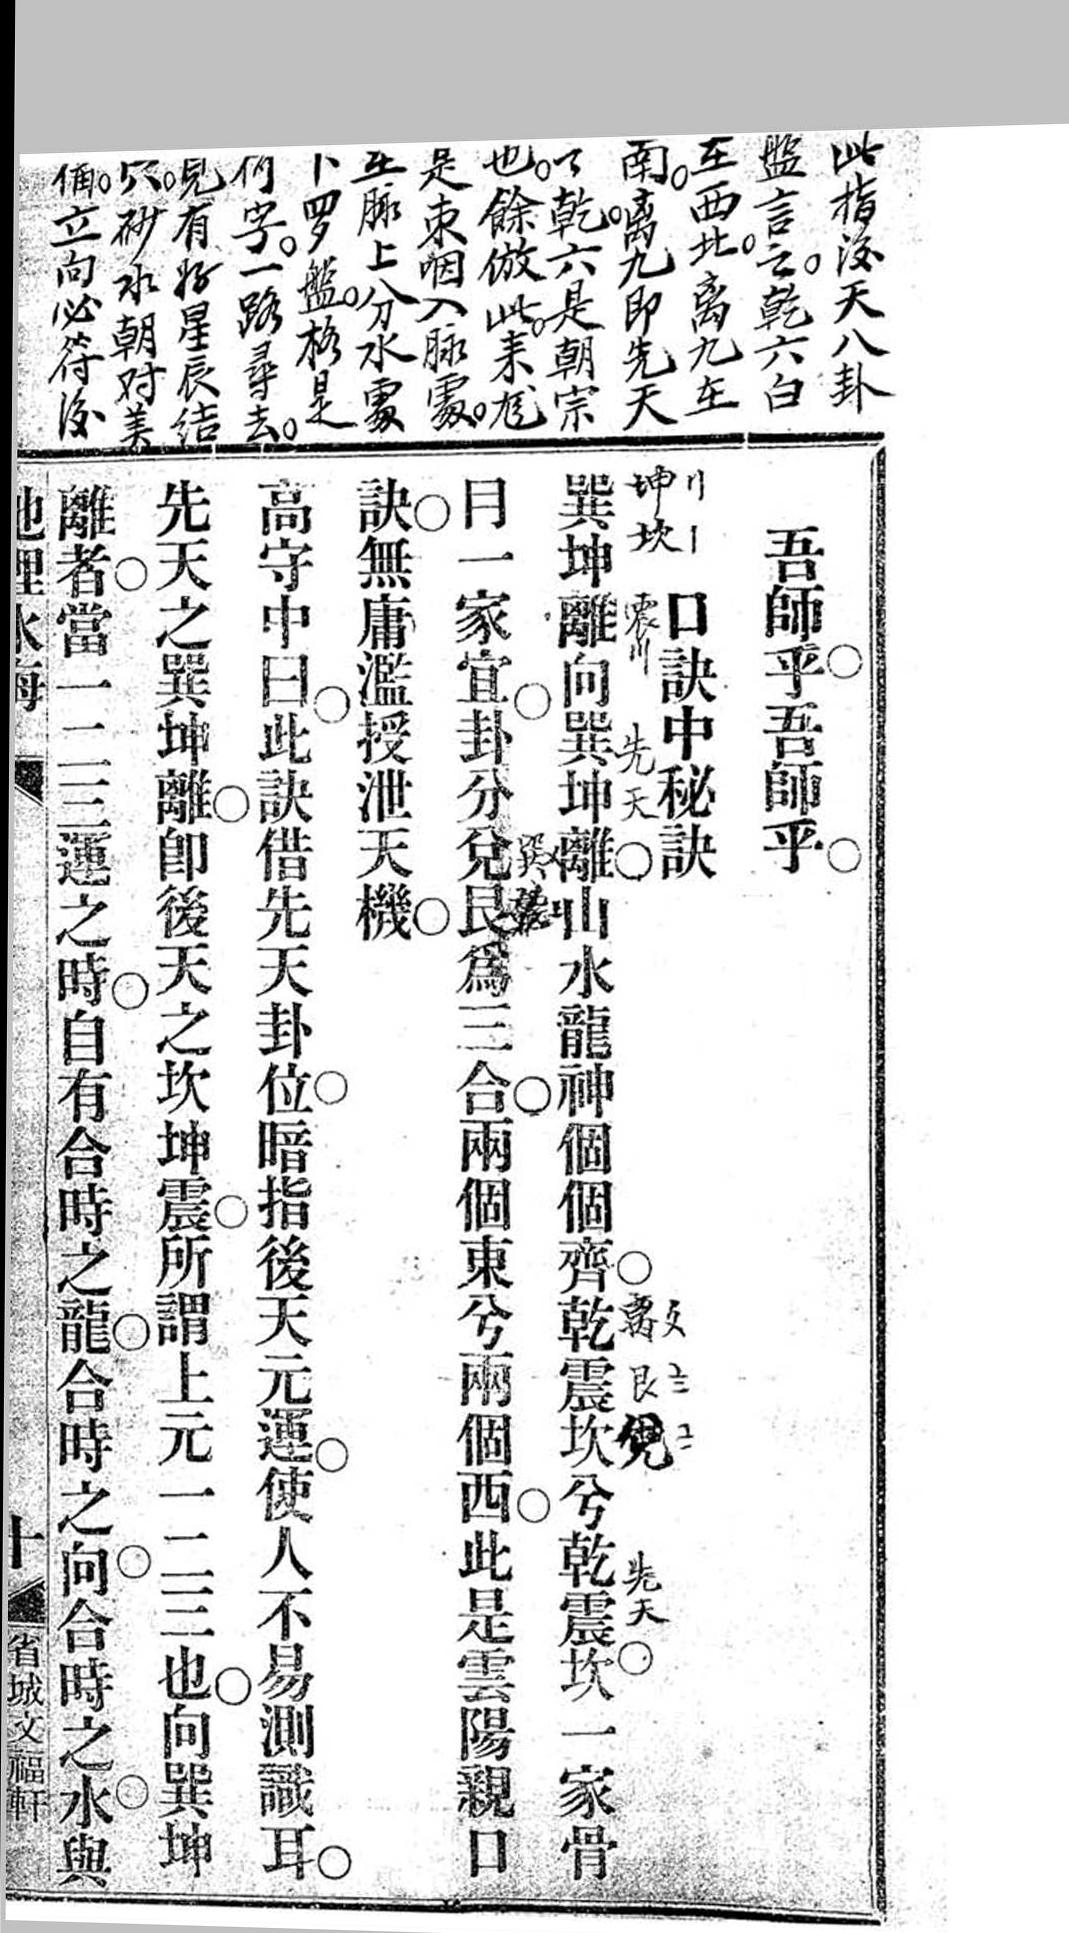 此指後天八卦
盤言之。乾六白
在西北。离九在
南。离九即先天
乾。六是朝宗
也。餘倣此。来龙
是束咽入脉處。
在脉上分水處
卜罗盤。格是
何字。一路尋去。
見有好星辰结
穴。砂水朝对美
俻。立向必符後
吾師乎吾師乎
口訣中秘訣
川 一
坤 坎 震川 先天
离 艮 兌 先天
巽坤離向巽坤離山水龍神個個齊乾震坎兮乾震坎一家骨
巽
月一家宜卦分兌艮為三合兩個東兮兩個西此是雲陽親口
訣無庸濫授泄天機
高守中曰此訣借先天卦位暗指後天元運使人不易測識耳
先天之巽坤離卽後天之坎坤震所謂上元一二三也向巽坤
離者當一二三運之時自有合時之龍合時之向合時之水與
地理水海 十 省城文福軒